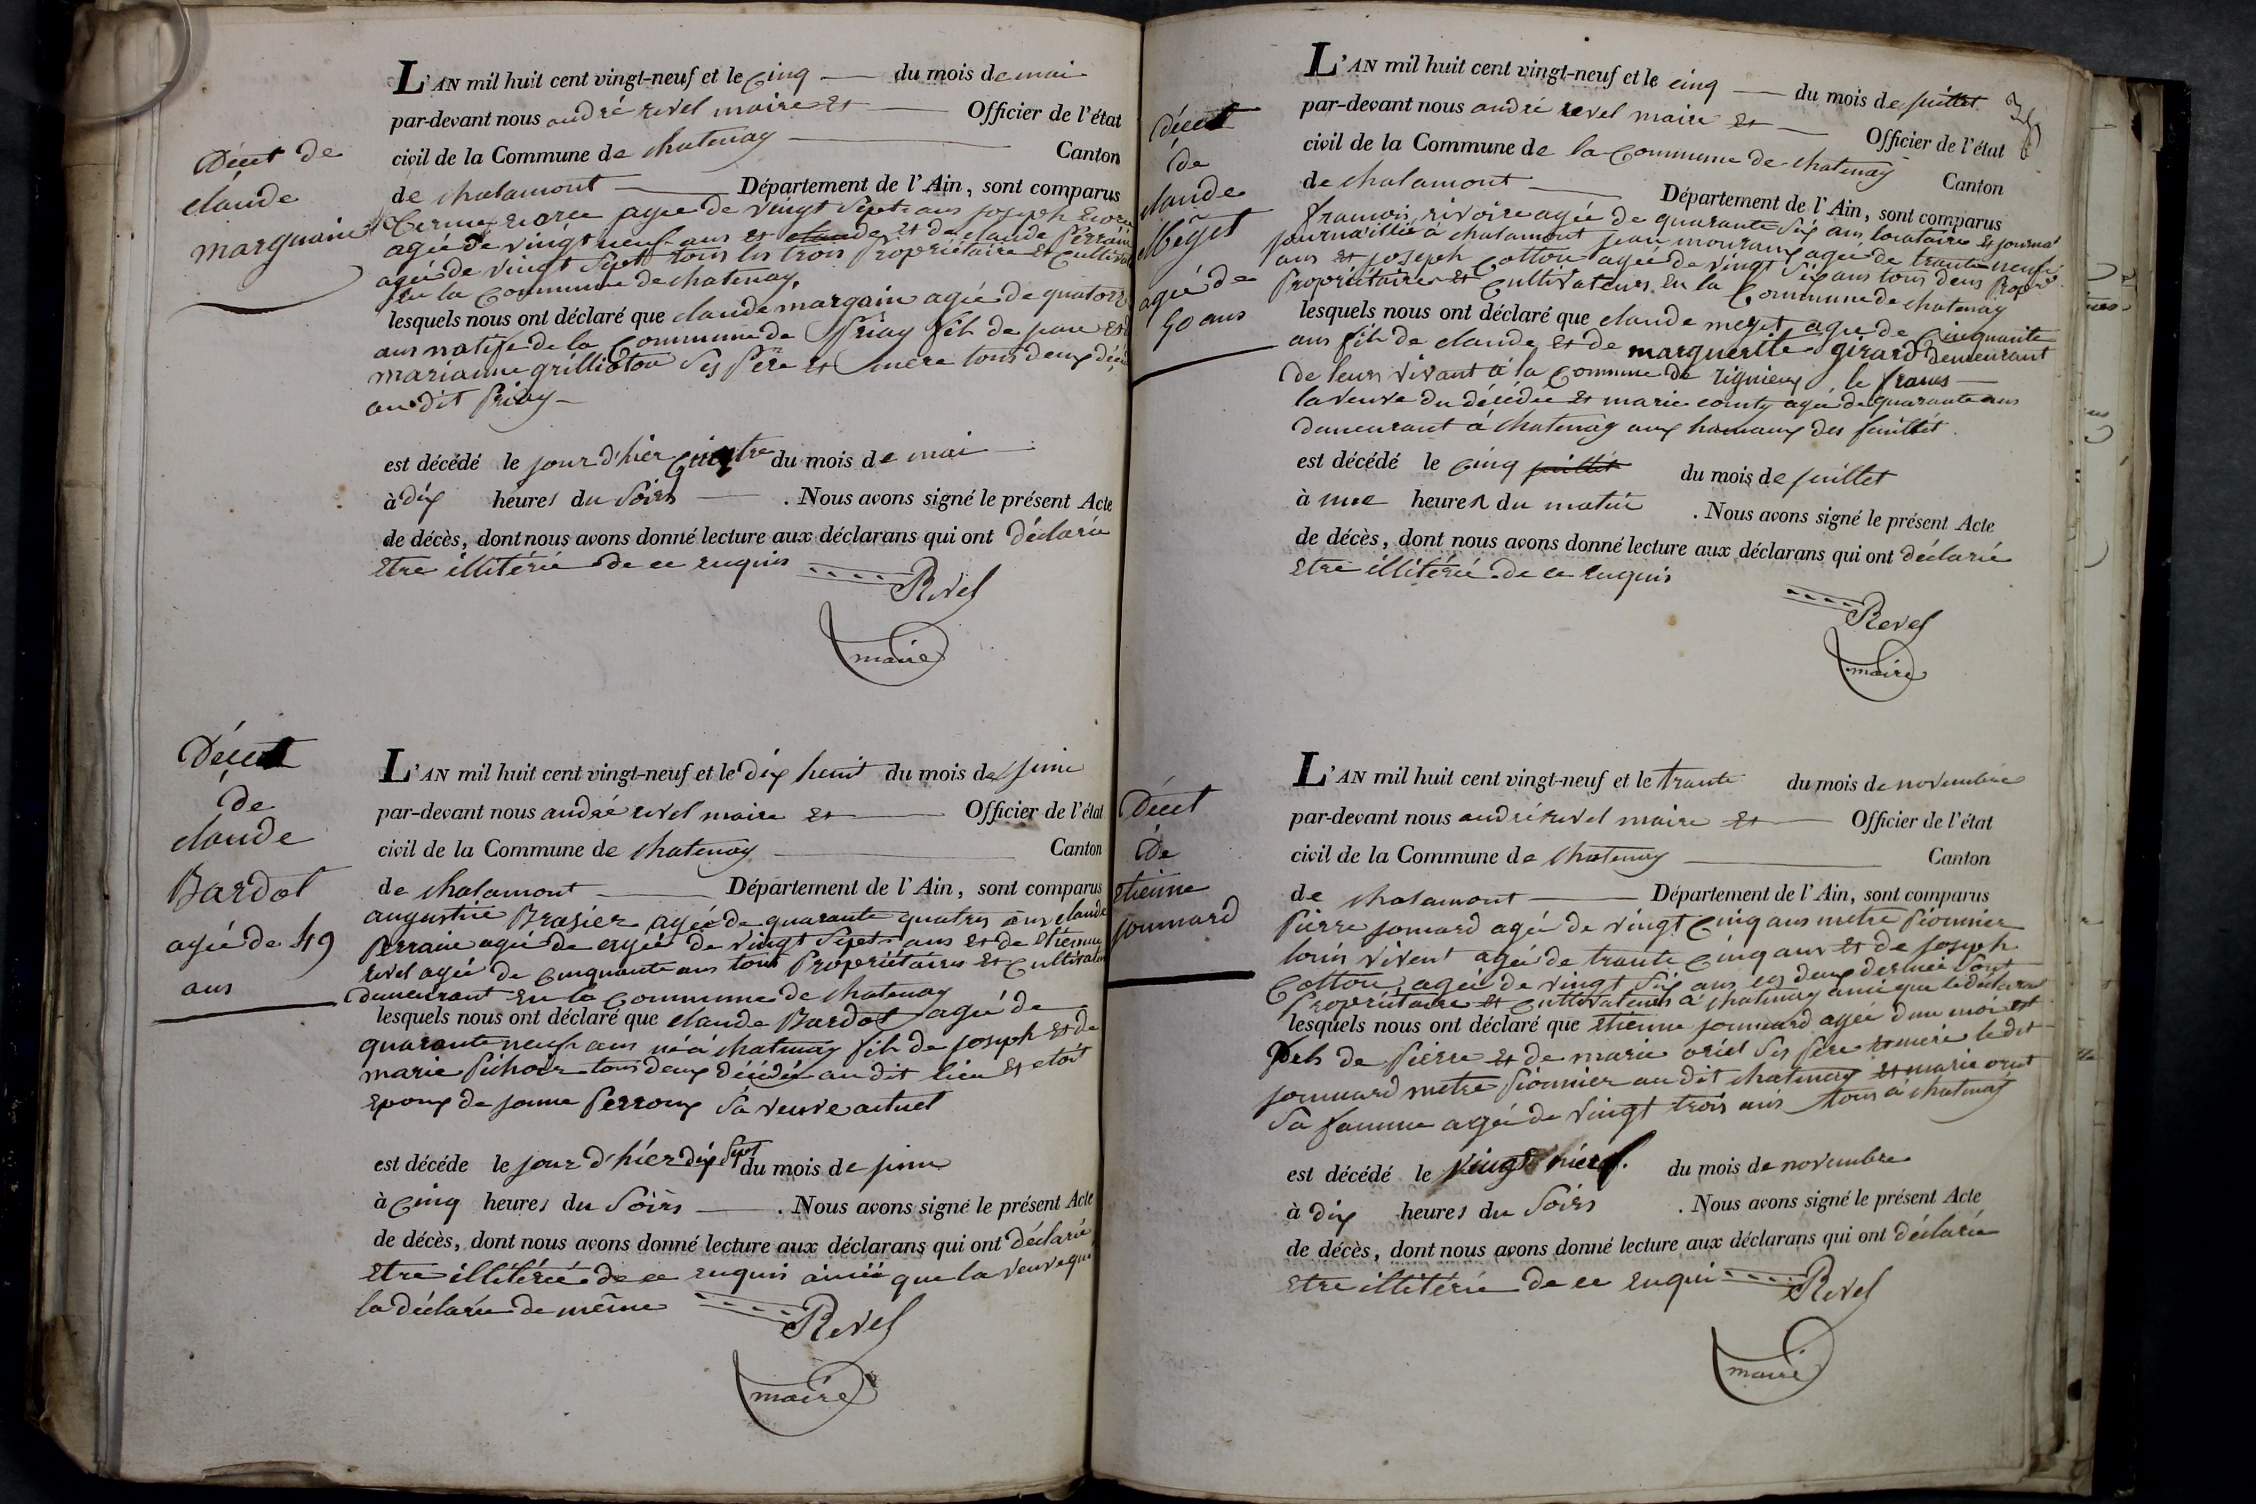 Décet de
claude
marguain
L'AN mil huit cent vingt-neuf et le cinq du mois de mai
par-devant nous andré revel maire et Officier de l'état
civil de la Commune de chatenay Canton
de chalamont Département de l'Ain, sont comparus
agée de vingt sept ans joseph
agée de vingt neuf ans et claude et de claude Perrain
agée de vingt sept tous les trois Propriétaire et Cultivat
en la Commune de chatenay,
lesquels nous ont déclaré que claude margain agée de quatorz
ans natife de la Commune de Priay fils de jean et
marianne grillieton ses Père et mere tous deux
au dit Priay
est décédé le jour d'hier du mois de mai
à dix heures du soirs . Nous avons signé le présent Acte
de décès, dont nous avons donné lecture aux déclarans qui ont déclarée
etre illitérée de ce enquis
Revel
maire
Décet
de
claude
Bardot
agée de 49
ans
L'AN mil huit cent vingt-neuf et le dix heuit du mois de juin
par-devant nous andré revel maire et Officier de l'état
civil de la Commune de chatenay Canton
de chalamont Département de l'Ain, sont comparus
augustin Brasier agée de quarante quatres ans claude
Perrain agée de agée de vingt sept ans et de etienne
revel agée de cinquante ans tous Propriétaires et Cultivateu
demeurant en la Commune de chatenay
lesquels nous ont déclaré que claude Bardot agée de
quarante neuf ans né à chatenay fils de joseph et de
marie Pichoir tous deux décédée au dit lieu et etoit
epoux de janne Perroux sa veuve actuel
est décédé le jour d'hier dix sept du mois de juin
à Cinq heures du soirs . Nous avons signé le présent Acte
de décès, dont nous avons donné lecture aux déclarans qui ont déclarée
etre illitérée de ce enquis ainsi que la veuve qui
la déclarée de même
Revel
maire
36
Décet
de
claude
Méget
agée de
50 ans
L'AN mil huit cent vingt-neuf et le cinq du mois de juillet
par-devant nous andré revel maire et Officier de l'état
civil de la Commune de la Commune de chatenay Canton
de chalamont Département de l'Ain, sont comparus
francois rivoire agée de quarante six ans locataire et journa
journaillié à chalamont jean agée de trante neuf
ans et joseph Cotton agée de vingt six ans tous deux Propr
Propriétaires et Cultivateurs en la Commune de chatenay
lesquels nous ont déclaré que claude meget agée de Cinquante
ans fils de claude et de marguerite girard demeurant
de leurs vivant à la Commune de rignieux le franc
la veuve du décédée et marie comty agée de quarante ans
demeurant à chatenay aux hamaux des feuillet.
est décédé le cinq juillet du mois de juillet
à une heures du matin . Nous avons signé le présent Acte
de décès, dont nous avons donné lecture aux déclarans qui ont déclarée
etre illitérée de ce enquis
Revel
maire
Décet
de
etienne
jommard
L'AN mil huit cent vingt-neuf et le trante du mois de novembre
par-devant nous andré revel maire et Officier de l'état
civil de la Commune de chatenay Canton
de chalamont Département de l'Ain, sont comparus
Pierre jomard agée de vingt Cinq ans metre Pionnier
louis vivent agée de trante Cinq ans et de joseph
Cotton agée de vingt six ans les deux dernié sont
Propriétaire et Cultivateurs à chatenay ainsi que
lesquels nous ont déclaré que etienne jommard agée d'un mois est
fils de Pierre et de marie oriel ses Père et mère le dit
jommard metre Pionnier au dit chatenay et marie
sa famme agée de vingt trois ans tous à chatenay
est décédé le vingt du mois de novembre
à dix heures du soirs . Nous avons signé le présent Acte
de décès, dont nous avons donné lecture aux déclarans qui ont déclarée
etre illitérée de ce enqui
Revel
maire